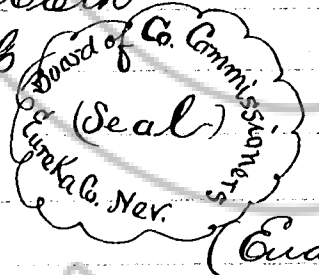 Board of Co. Commissioners
(Seal)
Eureka Co. Nev.